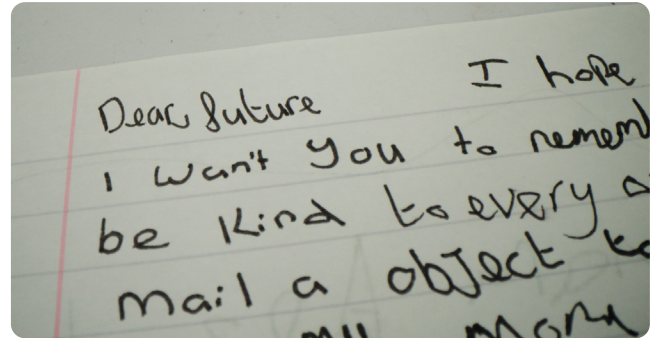 Dear future I hope
I wan't you to remem
be kind to every
mail a object to
my